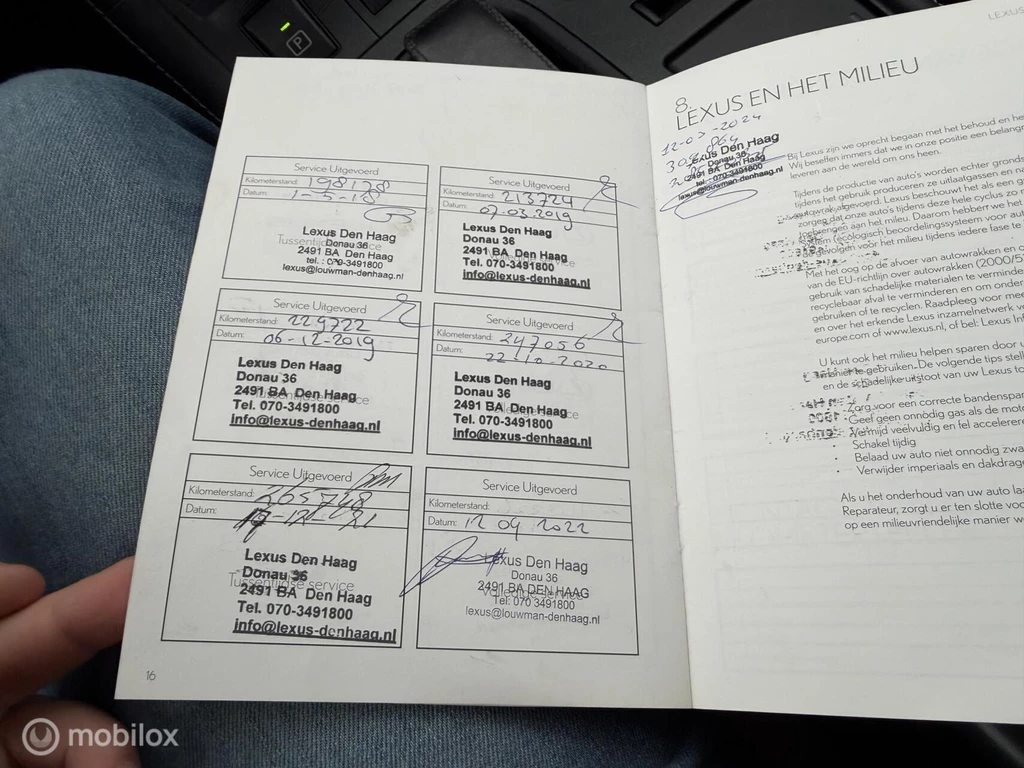 P
Service Uitgevoerd
Kilometerstand: 198128
Datum:
Lexus Den Haag
Tussentijdse service
Donau 36
2491 BA Den Haag
tel.: 070-3491800
lexus@louwman-denhaag.nl
Service Uitgevoerd
Kilometerstand: 213724
Datum: 07-03-2019
Lexus Den Haag
Donau 36
2491 BA Den Haag
Tel. 070-3491800
info@lexus-denhaag.nl
Service Uitgevoerd
Kilometerstand: 229722
Datum: 06-12-2019
Lexus Den Haag
Donau 36
2491 BA Den Haag
Tussentijdse service
Tel. 070-3491800
info@lexus-denhaag.nl
Service Uitgevoerd
Kilometerstand: 247056
Datum: 22-10-2020
Lexus Den Haag
Donau 36
2491 BA Den Haag
Tel. 070-3491800
info@lexus-denhaag.nl
Service Uitgevoerd
Kilometerstand: 265748
Datum:
Lexus Den Haag
Donau 36
Tussentijdse service
2491 BA Den Haag
Tel. 070-3491800
info@lexus-denhaag.nl
Service Uitgevoerd
Kilometerstand:
Datum: 12 09 2022
Lexus Den Haag
Donau 36
2491 BA DEN HAAG
Volledige service
Tel: 070 3491800
lexus@louwman-denhaag.nl
16
LEXUS
8.
LEXUS EN HET MILIEU
12-07-2024
Lexus Den Haag
Donau 36
2491 BA Den Haag
tel.: 070-3491800
lexus@louwman-denhaag.nl
Bij Lexus zijn we oprecht begaan met het behoud en he
Wij beseffen immers dat we in onze positie een belangr
leveren aan de wereld om ons heen.
Tijdens de productie van auto's worden echter grondst
tijdens het gebruik produceren ze uitlaatgassen en na
autowrak afgevoerd. Lexus beschouwt het als een g
zorgen dat onze auto's tijdens deze hele cyclus zo
toebrengen aan het milieu. Daarom hebben we het
systeem (ecologisch beoordelingssysteem voor auto
de gevolgen voor het milieu tijdens iedere fase te
Met het oog op de afvoer van autowrakken en o
van de EU-richtlijn over autowrakken (2000/53
gebruik van schadelijke materialen te verminder
recyclebaar afval te verminderen en om onder
gebruiken of te recyclen. Raadpleeg voor meer
en over het erkende Lexus inzamelnetwerk v
europe.com of www.lexus.nl, of bel: Lexus Inf
U kunt ook het milieu helpen sparen door u
manier te gebruiken. De volgende tips stelle
en de schadelijke uitstoot van uw Lexus to
· Zorg voor een correcte bandenspan
· Geef geen onnodig gas als de moto
· Vermijd veelvuldig en fel accelerere
· Schakel tijdig
· Belaad uw auto niet onnodig zwa
· Verwijder imperiaals en dakdrage
Als u het onderhoud van uw auto laa
Reparateur, zorgt u er ten slotte voo
op een milieuvriendelijke manier w
mobilox